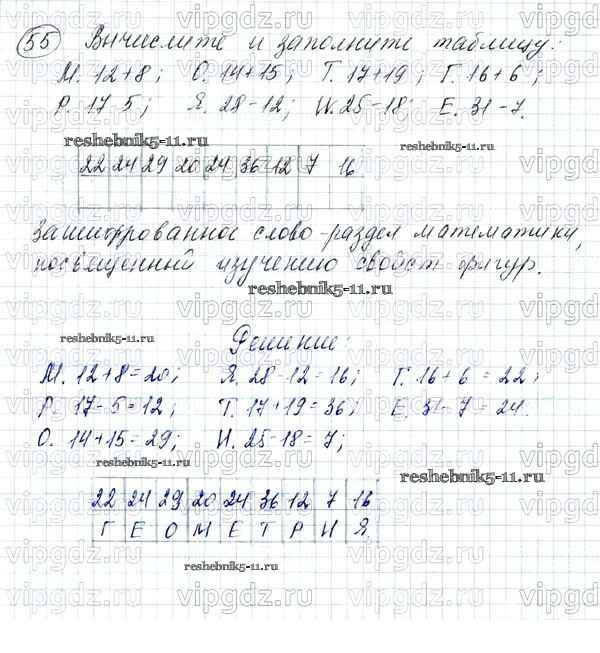 55 Вычислите и заполните таблицу:
М. 12+8; О. 14+15; Т. 17+19; Г. 16+6;
Р. 17-5; Я. 28-12; И. 25-18; Е. 31-7.
reshebnik5-11.ru reshebnik5-11.ru
22 24 29 20 24 36 12 7 16
Зашифрованное слово-раздел математики,
посвященный изучению свойст фигур.
reshebnik5-11.ru
reshebnik5-11.ru Решение:
М. 12+8=20; Я. 28-12=16; Г. 16+6=22;
Р. 17-5=12; Т. 17+19=36; Е. 31-7=24.
О. 14+15=29; И. 25-18=7;
reshebnik5-11.ru reshebnik5-11.ru
22 24 29 20 24 36 12 7 16
Г Е О М Е Т Р И Я.
reshebnik5-11.ru
vipgdz.ru